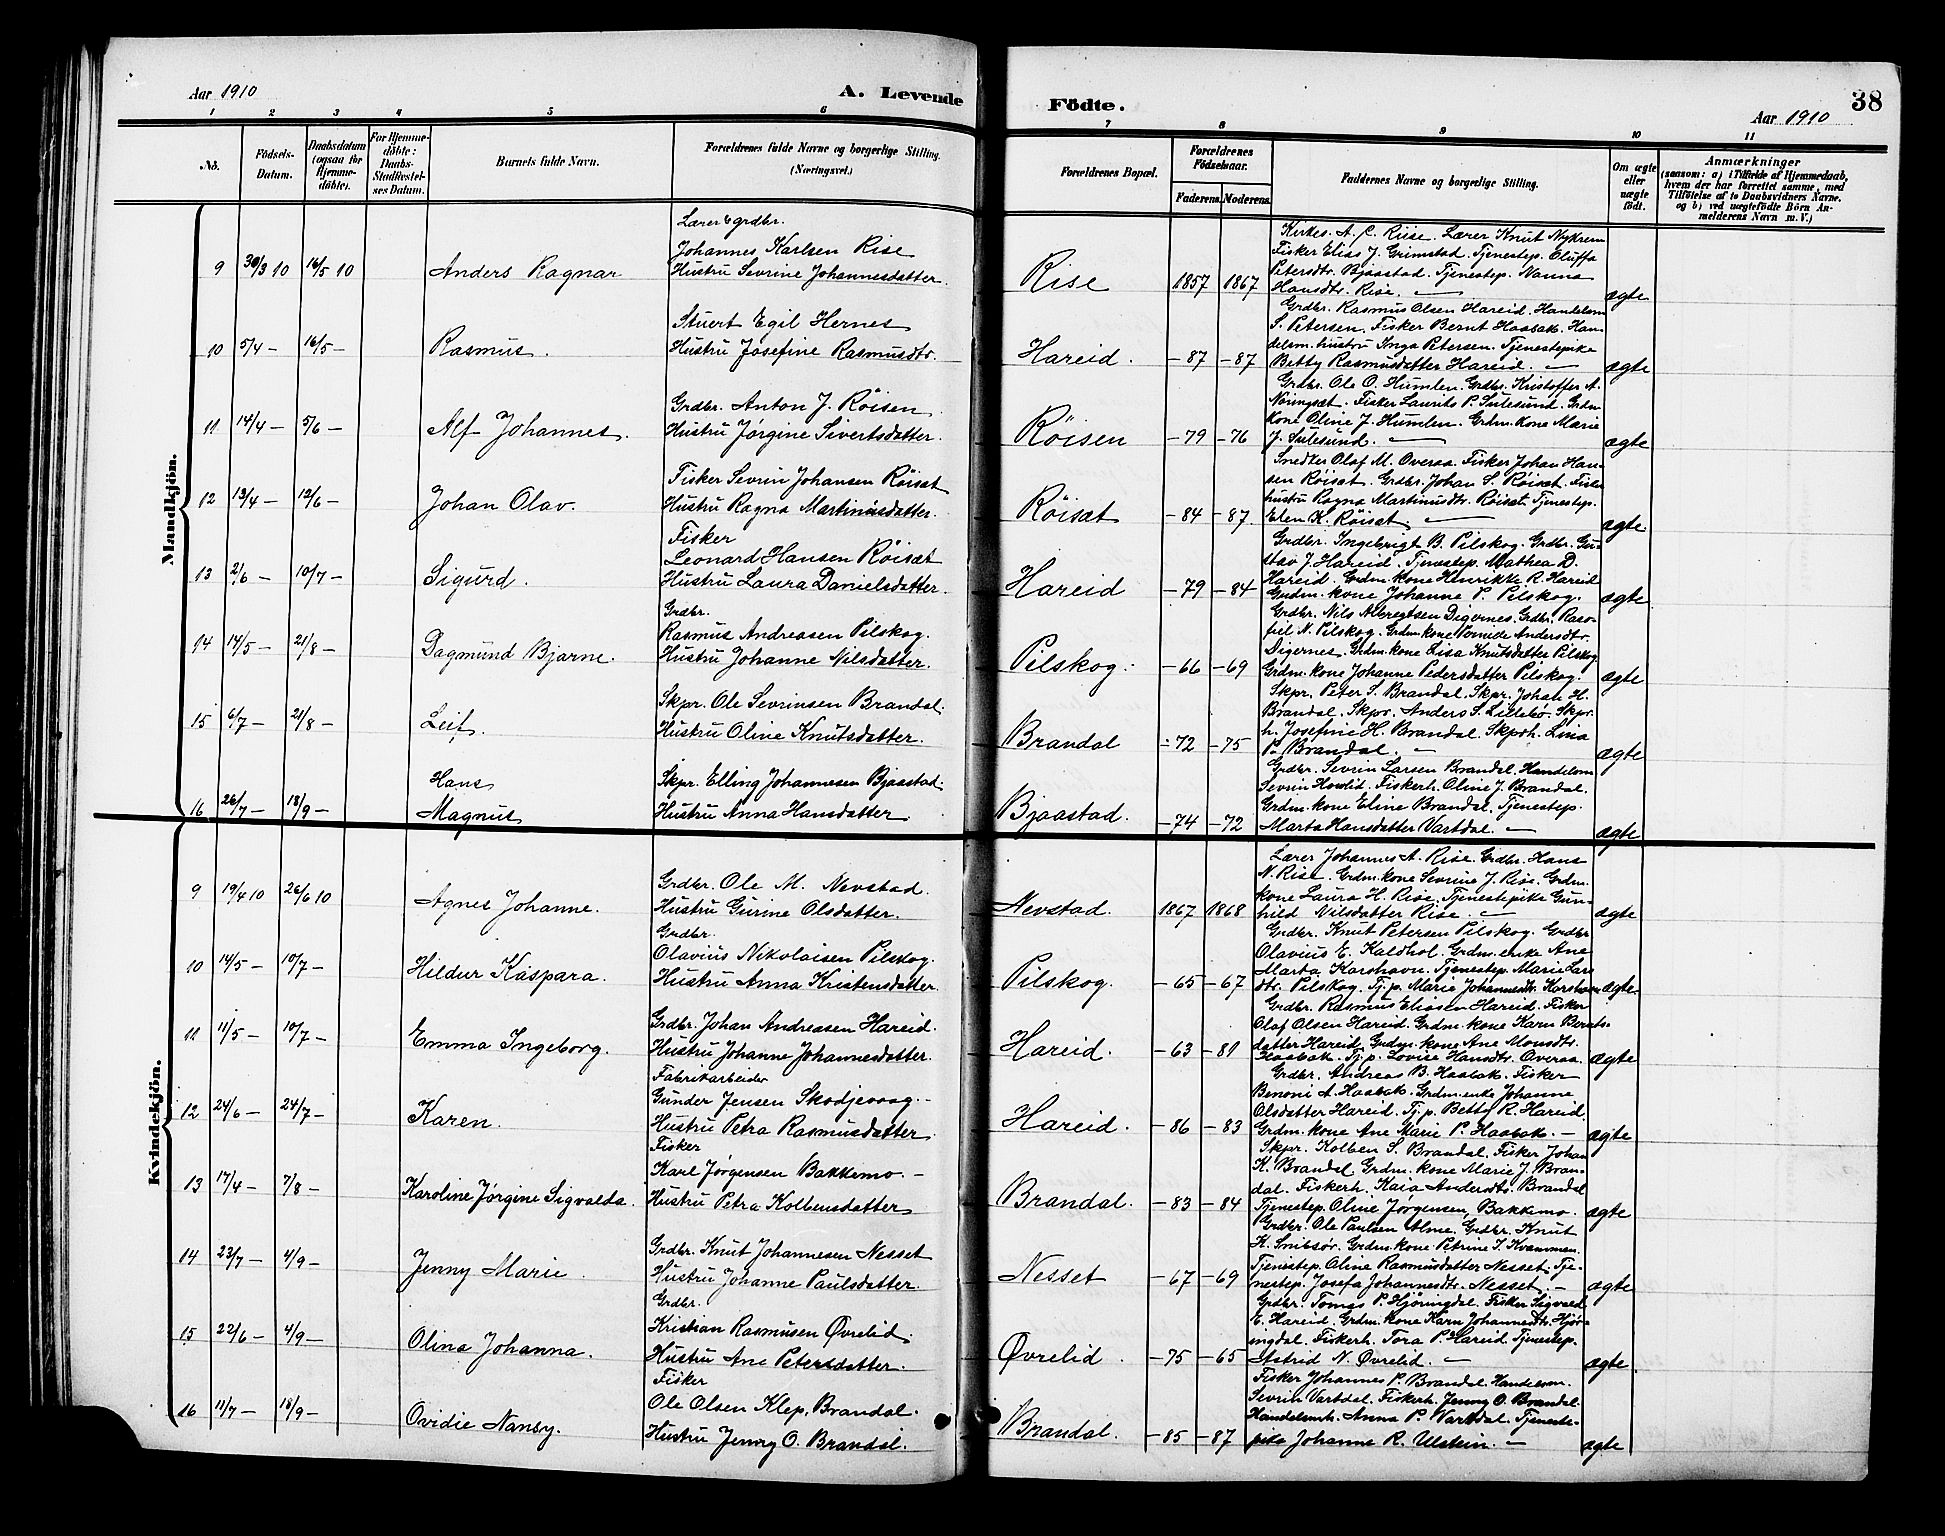 Aar 1910
A. Levende
Födte.
38
Aar 1910
1 2 3 4 5 6 7 8 9 10 11
No.
Födsels-
Datum.
Daabsdatum
(ogsaa for
Hjemme-
döbte).
For Hjemme-
döbte:
Daabs-
Stadfæstel-
ses Datum.
Barnets fulde Navn.
Forældrenes fulde Navne og borgerlige Stilling.
(Næringsvei.)
Forældrenes Bopæl.
Forældrenes
Födselsaar.
Faderens. Moderens.
Faddernes Navne og borgerlige Stilling.
Om ægte
eller
uægte
födt.
Anmærkninger
(saasom: a) i Tilfælde af Hjemmedaab,
hvem der har forrettet samme, med
Tilföielse af to Daabsvidners Navne.
og b) ved uægtefödte Börn An-
melderens Navn m. V.)
Mandkjön.
9 30/3 10 16/5 10 Anders Ragnar
Lærer & grdbr.
Johannes Karlsen Rise
Hustru Sevrine Johannesdatter.
Rise 1857 1867
Kirkes. A. C. Riise. Lærer Knut Nykrem
Fisker Elias J. Grimstad. Tjenestep. Oluffa
Petersdtr. Bjaastad. Tjenestep. Nanna
Hansdtr. Rise. —
ægte
10 5/4 — 16/5 — Rasmus.
Stuert Egil Hernes
Hustru Josefine Rasmusdtr.
Hareid. —87 —87
Grdbr. Rasmus Olsen Hareid. Handelsm
S. Petersen. Fisker Bernt Haabak. Han-
delsm. hustru Inga Petersen. Tjenestepike
Betty Rasmusdatter Hareid. —
ægte
11 14/4 — 5/6 — Alf Johannes.
Grdbr. Anton J. Röisen
Hustru Jørgine Sivertsdatter.
Röisen —79 —76
Grdbr. Ole O. Humlen. Grdbr. Kristoffer A.
Nöringsæt. Fisker Laurits P. Sulesund. Grdm
kone Oline J. Humlen. Grdm. kone Marie
J. Sulesund. —
ægte
12 13/4 — 12/6 — Johan Olav.
Fisker Sevrin Johansen Röisæt
Hustru Ragna Martinusdatter.
Röisæt —84 —87.
Snedker Olaf M. Overaa. Fisker Johan Han-
sen Röisæt. Grdbr. Johan S. Röisæt. Fisker
hustru Ragna Martinusdtr. Röisæt. Tjenestep.
Elen K. Röisæt. —
ægte.
13 2/6 — 10/7 — Sigurd.
Fisker
Leonard Hansen Röisæt
Hustru Laura Danielsdatter.
Hareid —79 —84
Grdbr. Ingebrigt B. Pilskog. Grdbr. Gu-
stav J. Hareid. Tjenestep. Mathea D.
Hareid. Grdm. kone Henrikke R. Hareid
Grdm. kone Johanne P. Pilskog.
ægte
14 14/5 — 21/8 — Dagmund Bjarne.
Grdbr.
Rasmus Andreasen Pilskog.
Hustru Johanne Nilsdatter.
Pilskog. —66 —69
Grdbr. Nils Albregtsen Digernes. Grdbr.
N. Pilskog. Grdm. kone Pernille Andersdtr.
Digernes. Grdm. kone Lisa Knutsdatter Pilskog
Grdm. kone Johanne Pedersdatter Pilskog.
ægte
15 6/7 — 21/8 — Leif.
Skpr. Ole Sevrinsen Brandal.
Hustru Oline Knutsdatter.
Brandal —72 —75
Skpr. Peter S. Brandal. Skpr. Johan H.
Brandal. Skpr. Anders S. Lillebö. Skpr.
h. Josefine H. Brandal. Skprh. Lina
P. Brandal. —
ægte
16 26/7 — 18/9 — Hans
Magnus
Skpr. Elling Johannesen Bjaastad.
Hustru Anna Hansdatter
Bjaastad. —74 —72
Grdbr. Sevrin Larsen Brandal. Handelsm
Sevrin Hovlid. Fiskerh. Oline J. Brandal.
Grdm. kone Eline Brandal. Tjenestep.
Marta Hansdatter Vartdal. —
ægte
Kvindekjön.
9 19/4 10 26/6 10 Agnes Johanne.
Grdbr. Ole M. Nevstad.
Hustru Gurine Olsdatter.
Nevstad. 1867 1868
Lærer Johannes A. Rise. Grdbr. Hans
N. Rise. Grdm. kone Sevrine J. Rise. Grdm.
kone Laura H. Rise. Tjenestepike Gun-
hild Nilsdatter Rise. —
ægte
10 14/5 — 10/7 — Hildur Kaspara.
Grdbr.
Olavius Nikolaisen Pilskog.
Hustru Anna Kristensdatter
Pilskog. —65 —67
Grdbr. Knut Petersen Pilskog. Grdbr
Olavius E. Kaldhol. Grdm. enke Ane
Marta Korshavn. Tjenestep. Marie Lars
dtr. Pilskog. Tj. p. Marie Johannesdtr. Korshavn
ægte
11 11/5 — 10/7 — Emma Ingeborg.
Grdbr. Johan Andreasen Hareid.
Hustru Johanne Johannesdatter
Hareid. —63 —81
Grdbr. Rasmus Eliasen Hareid. Fisker
Olaf Olsen Hareid. Grdm. kone Karn Bernts-
datter Hareid. Grdm. kone Ane Monsdtr.
Haabak. Tj. p. Lovise Hansdtr. Overaa.
ægte
12 24/6 — 24/7 — Karen.
Fabrikarbeider
Gunder Jensen Skodjevaag. —
Hustru Petra Rasmusdatter
Hareid. —86 —83
Grdbr. Andreas B. Haabak. Fisker
Benoni A. Haabak. Grdm. enke Johanne
Olsdatter Hareid. Tj. p. Betty R. Hareid.
Grdm. kone Ane Marie P. Haabak. —
ægte
13 17/4 — 7/8 — Karoline Jørgine Sigvalda.
Fisker
Karl Jørgensen Bakkemo —
Hustru Petra Kolbensdatter
Brandal. —83 —84
Skpr. Kolben S. Brandal. Fisker Johan
K. Brandal. Grdm. kone Marie J. Bran-
dal. Fiskerh. Kaia Andersdtr. Brandal
Tjenestep. Oline Jørgensen, Bakkemo.
ægte
14 23/7 — 4/9 — Jenny Marie.
Grdbr. Knut Johannesen Nesset
Hustru Johanne Paulsdatter
Nesset —67 —69
Grdbr. Ole Paulsen Alme. Grdbr. Knut
K. Snibsör. Grdm. kone Petrine I. Kvammen.
Tjenestep. Oline Rasmusdatter Nesset. Tje-
nestep. Josefa Johannesdtr. Nesset. —
ægte
15 22/6 — 4/9 — Olina Johanna.
Grdbr.
Kristian Rasmusen Øvrelid.
Hustru Ane Petersdatter.
Øvrelid. —75 —65
Grdbr. Tomas P. Hjöringdal. Fisker Sigvald
E. Hareid. Grdm. kone Karn Johannesdtr. Hjör-
ingdal. Fiskerh. Tora P. Hareid. Tjenestep.
Astrid N. Øvrelid. —
ægte
16 11/7 — 18/9 — Ovidie Nansy.
Fisker
Ole Olsen Klep, Brandal.
Hustru Jenny O. Brandal.
Brandal. —85 —87
Fisker Johannes P. Brandal. Handelsm.
Sevrin Vartdal. Fiskerh. Jenny O. Brandal.
Handelsmh. Anna P. Vartdal. Tjeneste-
pike Johanne R. Ulstein. —
ægte